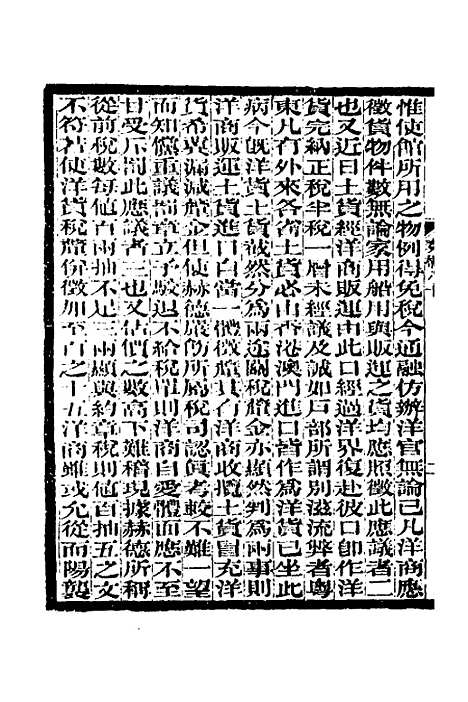 惟使館所用之物例得免稅今通融仿辦洋官無論已凡洋商應
徵貨物件數無論家用船用與販運之貨均應照徵此應議者二
也又近日土貨經洋商販運由此口經過洋界復赴彼口卽作洋
貨完納正稅半稅一層未經議及誠如戶部所謂別滋流弊者粵
東凡有外來各省土貨必由香港澳門進口皆作爲洋貨已坐此
病今旣洋貨土貨截然分爲兩途關稅釐金亦顯然判爲兩事則
洋商販運土貨進口自當一體徵釐其有洋商收攬土貨冒充洋
貨希冀漏減釐金但使赫德嚴飭所屬稅司認眞考較不難一望
而知懲重議罰章立予駁退不給稅單則洋商自愛體面應不至
甘受斥罰此應議者三也又估價之數高下難稽現據赫德所稱
從前稅數每他百兩抽不足三兩顯與約章稅則他百抽五之文
不符若使洋貨稅釐倂徵加至百之十五洋商雖或允從而陽襲